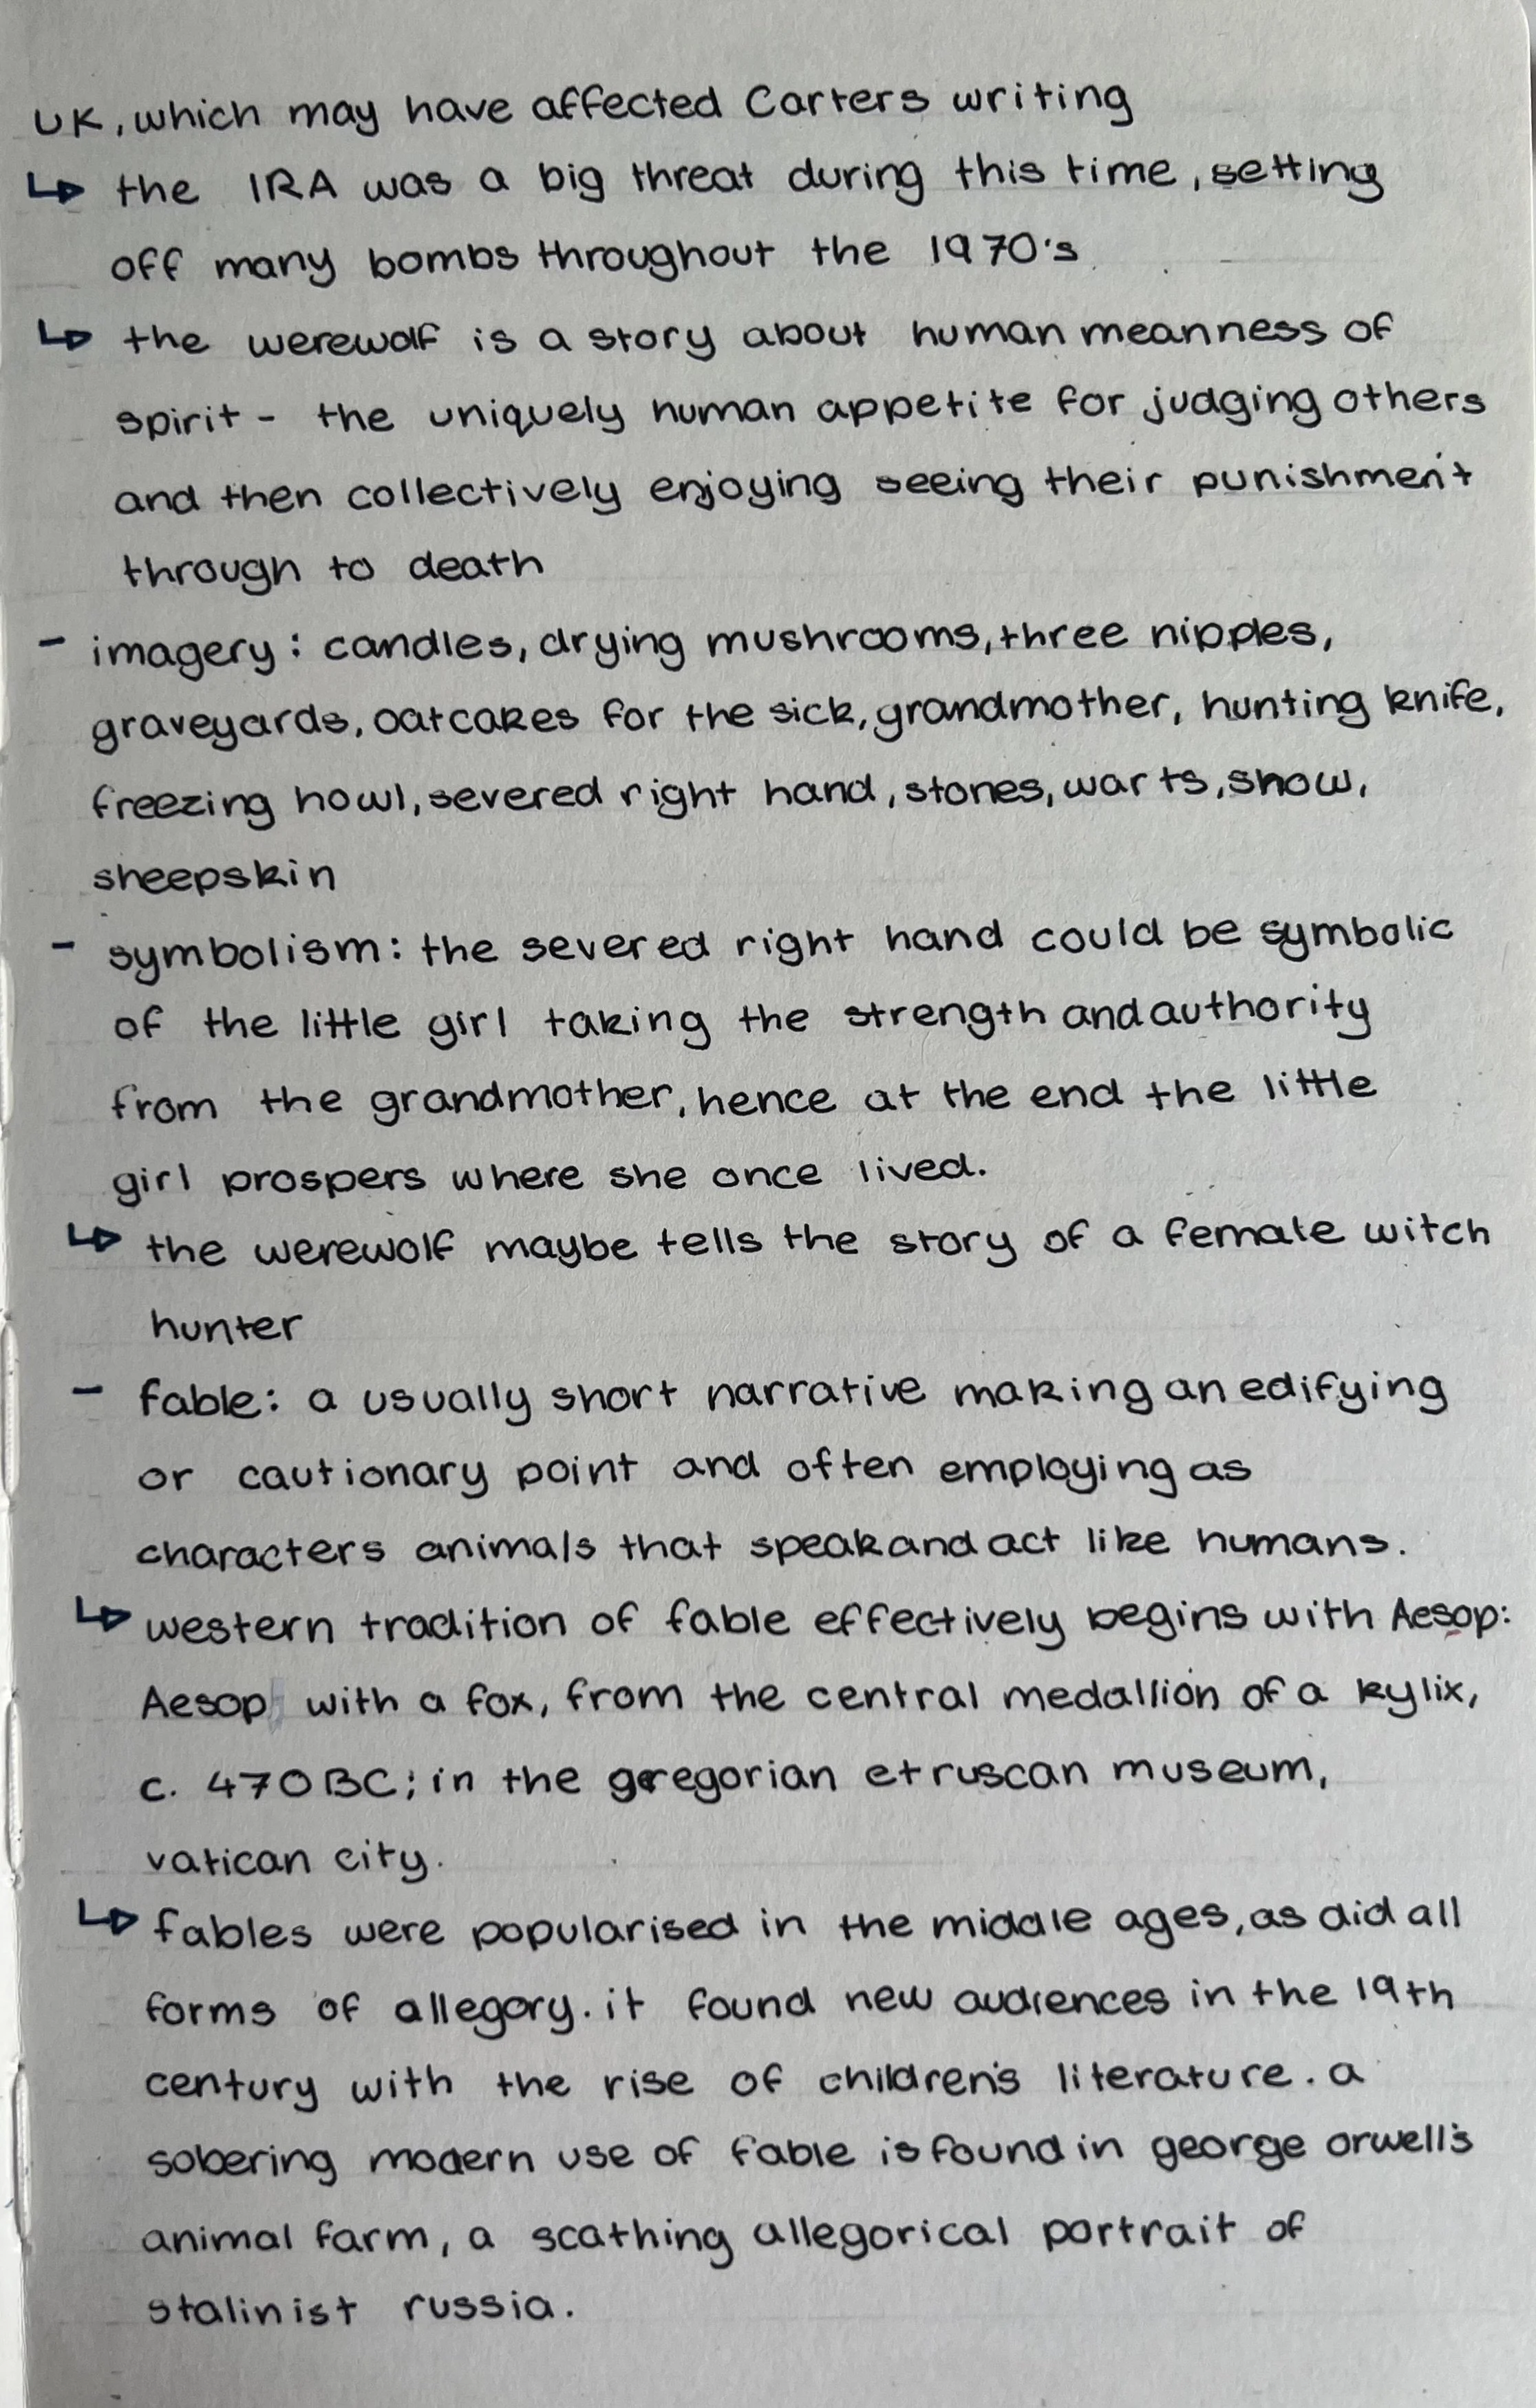 UK, which may have affected Carters writing
↳ the IRA was a big threat during this time, setting
off many bombs throughout the 1970's
↳ the werewolf is a story about human meanness of
spirit - the uniquely human appetite for judging others
and then collectively enjoying seeing their punishment
through to death
- imagery: candles, drying mushrooms, three nipples,
graveyards, oatcakes for the sick, grandmother, hunting knife,
freezing howl, severed right hand, stones, warts, snow,
sheepskin
- symbolism: the severed right hand could be symbolic
of the little girl taking the strength and authority
from the grandmother, hence at the end the little
girl prospers where she once lived.
↳ the werewolf maybe tells the story of a female witch
hunter
- fable: a usually short narrative making an edifying
or cautionary point and often employing as
characters animals that speak and act like humans.
↳ western tradition of fable effectively begins with Aesop:
Aesop with a fox, from the central medallion of a kylix,
c. 470BC; in the gregorian etruscan museum,
vatican city.
↳ fables were popularised in the middle ages, as did all
forms of allegory. it found new audiences in the 19th
century with the rise of children's literature. a
sobering modern use of fable is found in george orwell's
animal farm, a scathing allegorical portrait of
stalinist russia.